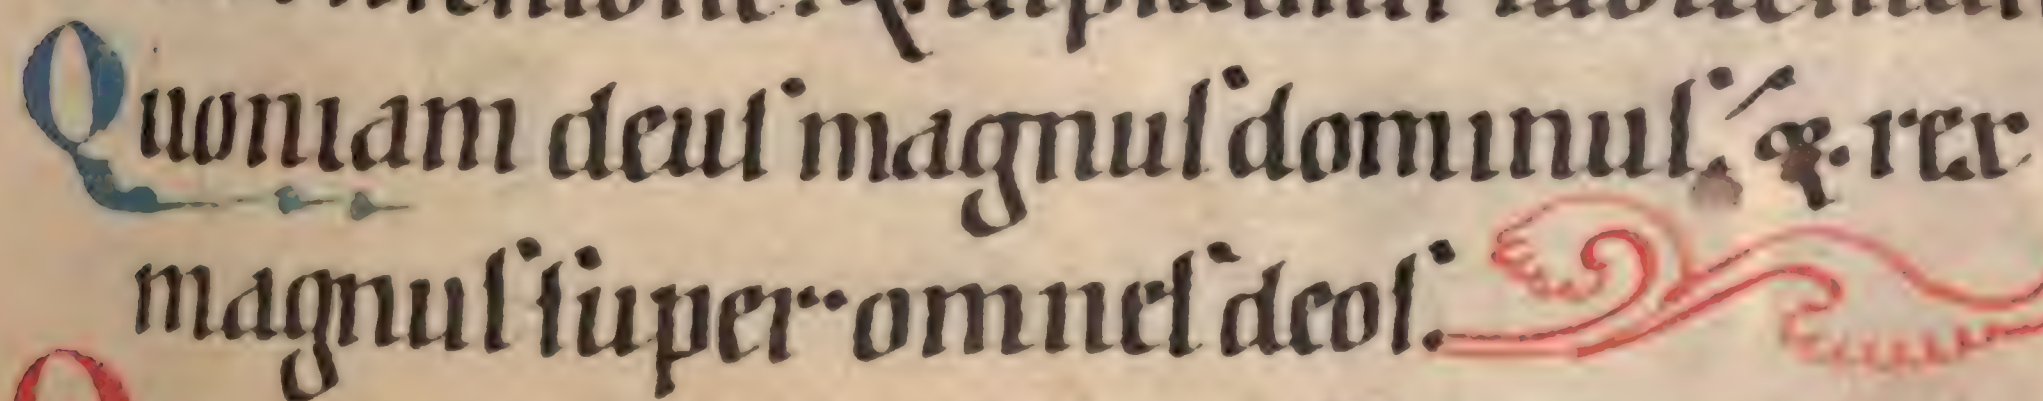 Quoniam deus magnus dominus. & rex
magnus super omnes deos.